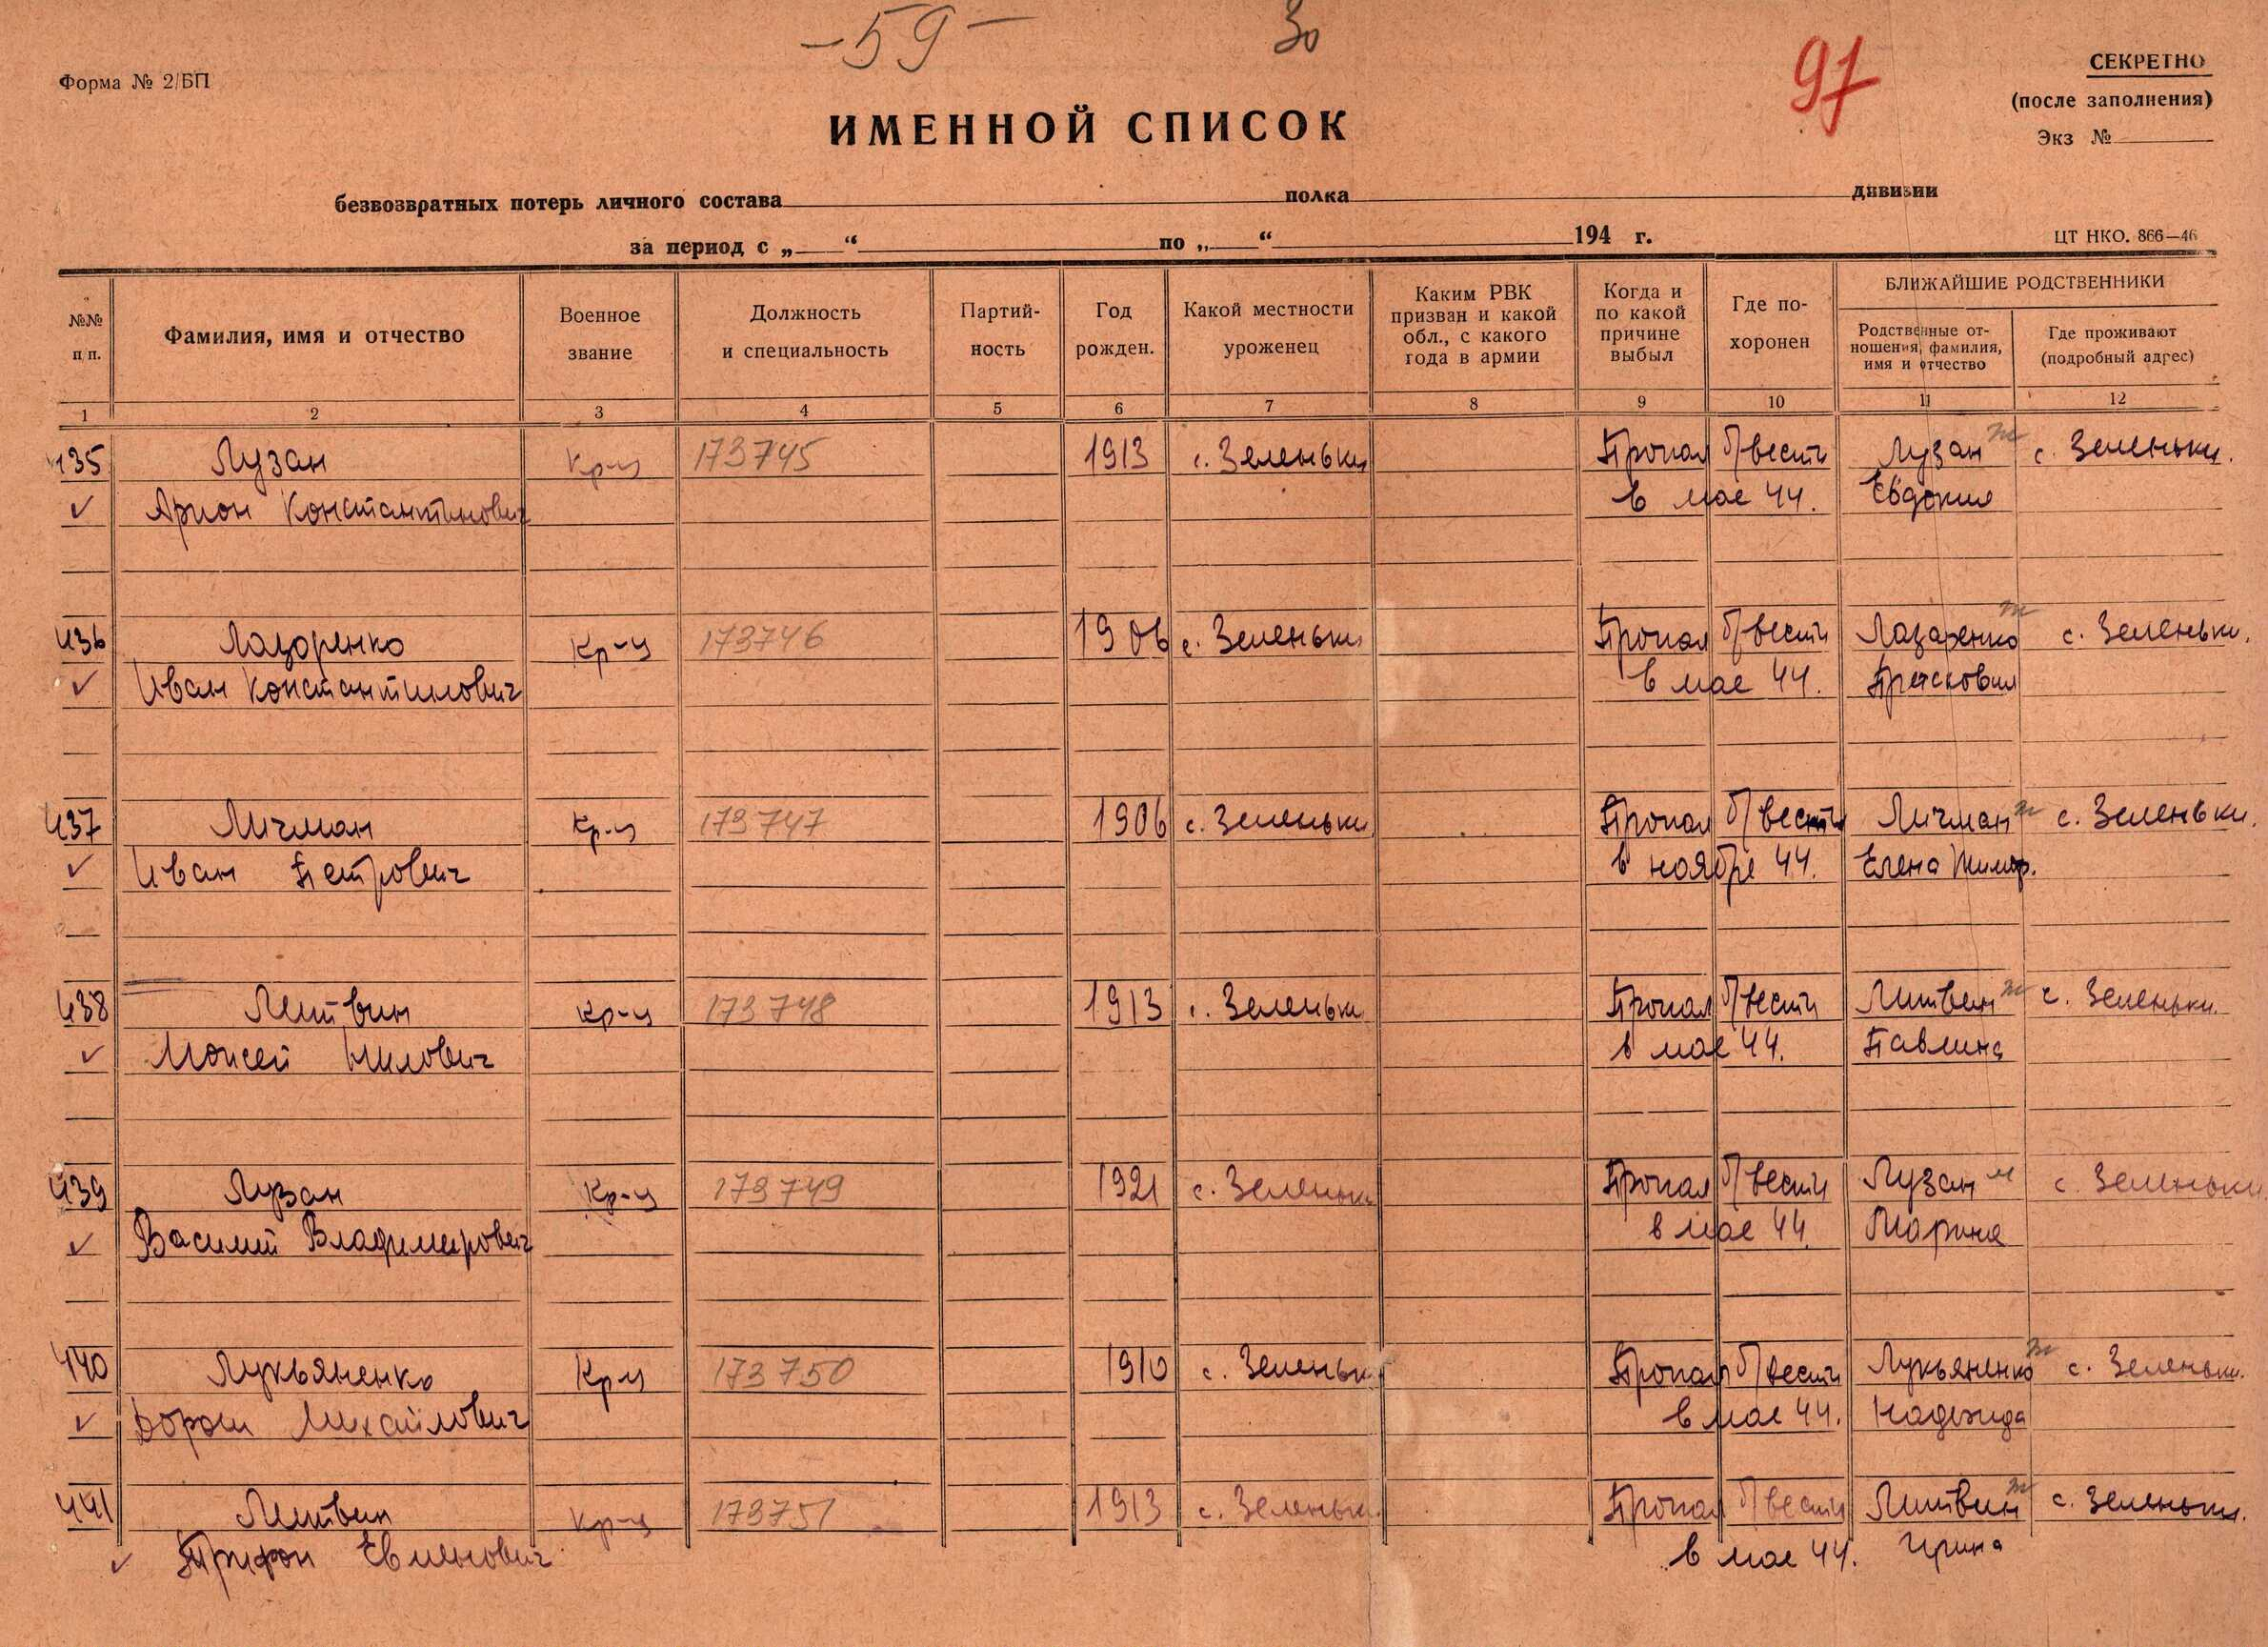 -59-
30
97
Форма № 2/БП
СЕКРЕТНО
(после заполнения)
Экз №
ИМЕННОЙ СПИСОК
безвозвратных потерь личного состава полка дивизии
за период с „ “ по „ “ 194 г.
ЦТ НКО. 866—46
№№ п/п.
Фамилия, имя и отчество
Военное звание
Должность и специальность
Партий-ность
Год рожден.
Какой местности уроженец
Каким РВК призван и какой обл., с какого года в армии
Когда и по какой причине выбыл
Где по-хоронен
БЛИЖАЙШИЕ РОДСТВЕННИКИ
Родственные от-ношения, фамилия, имя и отчество
Где проживают (подробный адрес)
1 2 3 4 5 6 7 8 9 10 11 12
435 Лузан Кр-ц 173745 1913 с. Зеленьки Пропал б/вести Лузан ж с. Зеленьки.
✓ Арион Константинович в мае 44. Евдокия
436 Лазоренко Кр-ц 173746 1906 с. Зеленьки Пропал б/вести Лазаренко ж с. Зеленьки.
✓ Иван Константинович в мае 44. Прасковия
437 Личман Кр-ц 173747 1906 с. Зеленьки Пропал б/вести Личман ж с. Зеленьки.
✓ Иван Петрович в ноябре 44. Елена
438 Литвин Кр-ц 173748 1913 с. Зеленьки Пропал б/вести Литвин ж с. Зеленьки.
✓ Моисей Нилович в мае 44. Павлина
439 Лузан Кр-ц 173749 1921 с. Зеленьки Пропал б/вести Лузан м с. Зеленьки
✓ Василий Владимирович в мае 44 Марина
440 Лукьяненко Кр-ц 173750 1910 с. Зеленьки Пропал б/вести Лукьяненко ж с. Зеленьки.
✓ Михайлович в мае 44. Надежида
441 Литвин Кр-ц 173751 1913 с. Зеленьки Пропал б/вести Литвин ж с. Зеленьки.
✓ Трифон Евменович в мае 44. Ирина